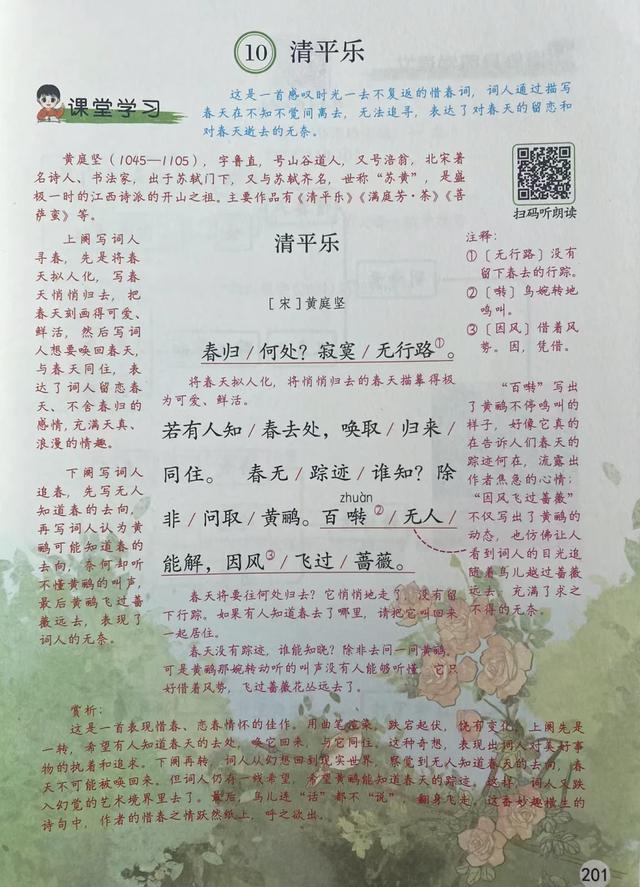 10 清平乐
课堂学习
这是一首感叹时光一去不复返的惜春词，词人通过描写
春天在不知不觉间离去，无法追寻，表达了对春天的留恋和
对春天逝去的无奈。
黄庭坚（1045—1105），字鲁直，号山谷道人，又号涪翁，北宋著
名诗人、书法家，出于苏轼门下，又与苏轼齐名，世称“苏黄”，是盛
极一时的江西诗派的开山之祖。主要作品有《清平乐》《满庭芳·茶》《菩
萨蛮》等。
扫码听朗读
上阕写词人
寻春，先是将春
天拟人化，写春
天悄悄归去，把
春天刻画得可爱、
鲜活，然后写词
人想要唤回春天，
与春天同住，表
达了词人留恋春
天、不舍春归的
感情，充满天真、
浪漫的情趣。
下阕写词人
追春，先写无人
知道春的去向，
再写词人认为黄
鹂可能知道春的
去向，奈何却听
不懂黄鹂的叫声，
最后黄鹂飞过蔷
薇远去，表现了
词人的无奈。
清平乐
［宋］黄庭坚
春归/何处？寂寞/无行路①。
将春天拟人化，将悄悄归去的春天描摹得极
为可爱、鲜活。
若有人知/春去处，唤取/归来/
同住。 春无/踪迹/谁知？除
zhuàn
非/问取/黄鹂。百啭②/无人/
能解，因风③/飞过/蔷薇。
春天将要往何处归去？它悄悄地走了，没有留
下行踪。如果有人知道春去了哪里，请把它叫回来
一起居住。
春天没有踪迹，谁能知晓？除非去问一问黄鹂。
可是黄鹂那婉转动听的叫声没有人能够听懂，它只
好借着风势，飞过蔷薇花丛远去了。
注释：
①［无行路］没有
留下春去的行踪。
②［啭］鸟婉转地
鸣叫。
③［因风］借着风
势。因，凭借。
“百啭”写出
了黄鹂不停鸣叫的
样子，好像它真的
在告诉人们春天的
踪迹何在，流露出
作者焦急的心情；
“因风飞过蔷薇”
不仅写出了黄鹂的
动态，也仿佛让人
看到词人的目光追
随着鸟儿越过蔷薇
远去，充满了求之
不得的无奈。
赏析：
这是一首表现惜春、恋春情怀的佳作，用曲笔渲染，跌宕起伏，饶有变化。上阕先是
一转，希望有人知道春天的去处，唤它回来，与它同住，这种奇想，表现出词人对美好事
物的执着和追求。下阕再转，词人从幻想回到现实世界，察觉到无人知道春天的去向，春
天不可能被唤回来。但词人仍存一线希望，希望黄鹂能知道春天的踪迹。这样，词人又跌
入幻觉的艺术境界里去了。最后，鸟儿连“话”都不“说”，翻身飞走，这番妙趣横生的
诗句中，作者的惜春之情跃然纸上，呼之欲出。
201